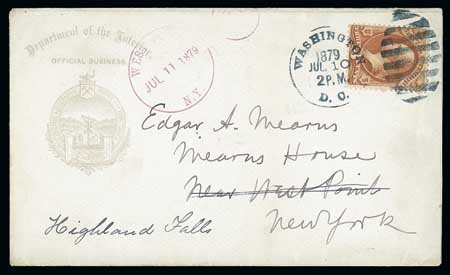 Department of the Interior
OFFICIAL BUSINESS
WES
JUL 11 1879
N.Y.
WASHINGTON
1879
JUL 10
2 P.M.
D. C.
Edgar A. Mearns
Mearns House
Near West Point
Highland Falls
New York